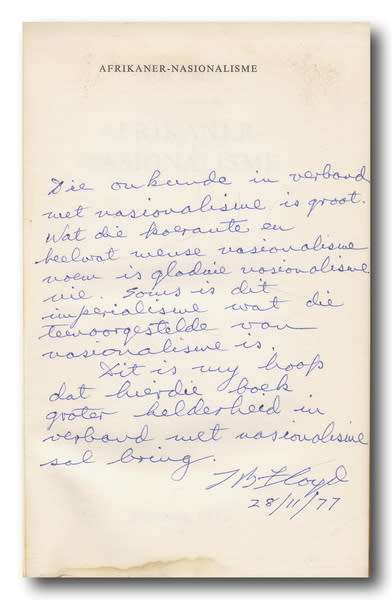 AFRIKANER-NASIONALISME
Die onkunde in verband
met nasionalisme is groot.
Wat die koerante en
heelwat mense nasionalisme
noem is gladnie nasionalisme
nie. Soms is dit
imperialisme wat die
teenoorgestelde van
nasionalisme is.
Dit is my hoop
dat hierdie boek
groter helderheid in
verband met nasionalisme
sal bring.
TB Floyd
28/11/77